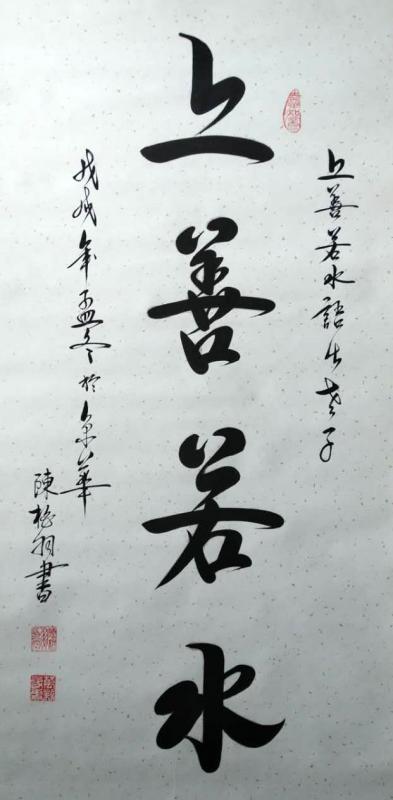 上善若水語出老子
上善若水
戊戌年孟冬於京華
陳 羽書